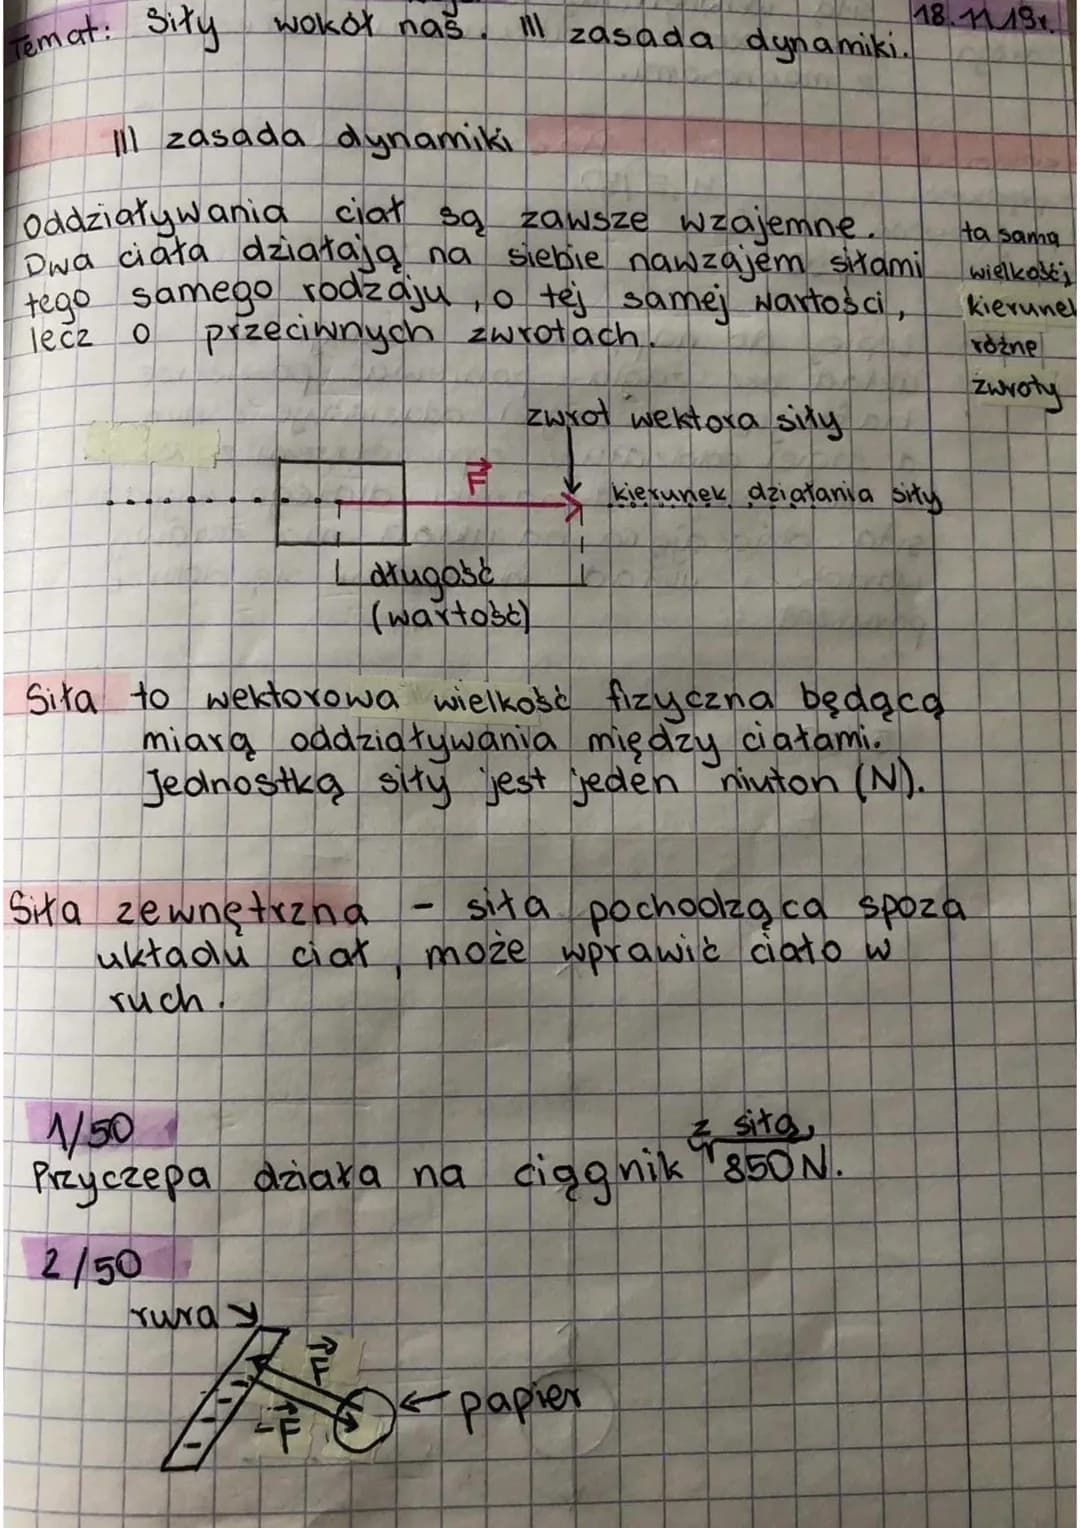 18.11.19r.
Temat: Siły wokół nas. III zasada dynamiki.
III zasada dynamiki
Oddziaływania ciał są zawsze wzajemne.
Dwa ciała działają na siebie nawzajem siłami
tego samego rodzaju, o tej samej wartości,
lecz o przeciwnych zwrotach.
ta sama
wielkość,
kierunek
różne
zwroty
zwrot wektora siły
F
kierunek działania siły
długość
(wartość)
Siła to wektorowa wielkość fizyczna będąca
miarą oddziaływania między ciałami.
Jednostką siły jest jeden niuton (N).
Siła zewnętrzna - siła pochodząca spoza
układu ciał, może wprawić ciało w
ruch.
1/50
z siłą
Przyczepa działa na ciągnik 850N.
2/50
rura
F
-F
papier